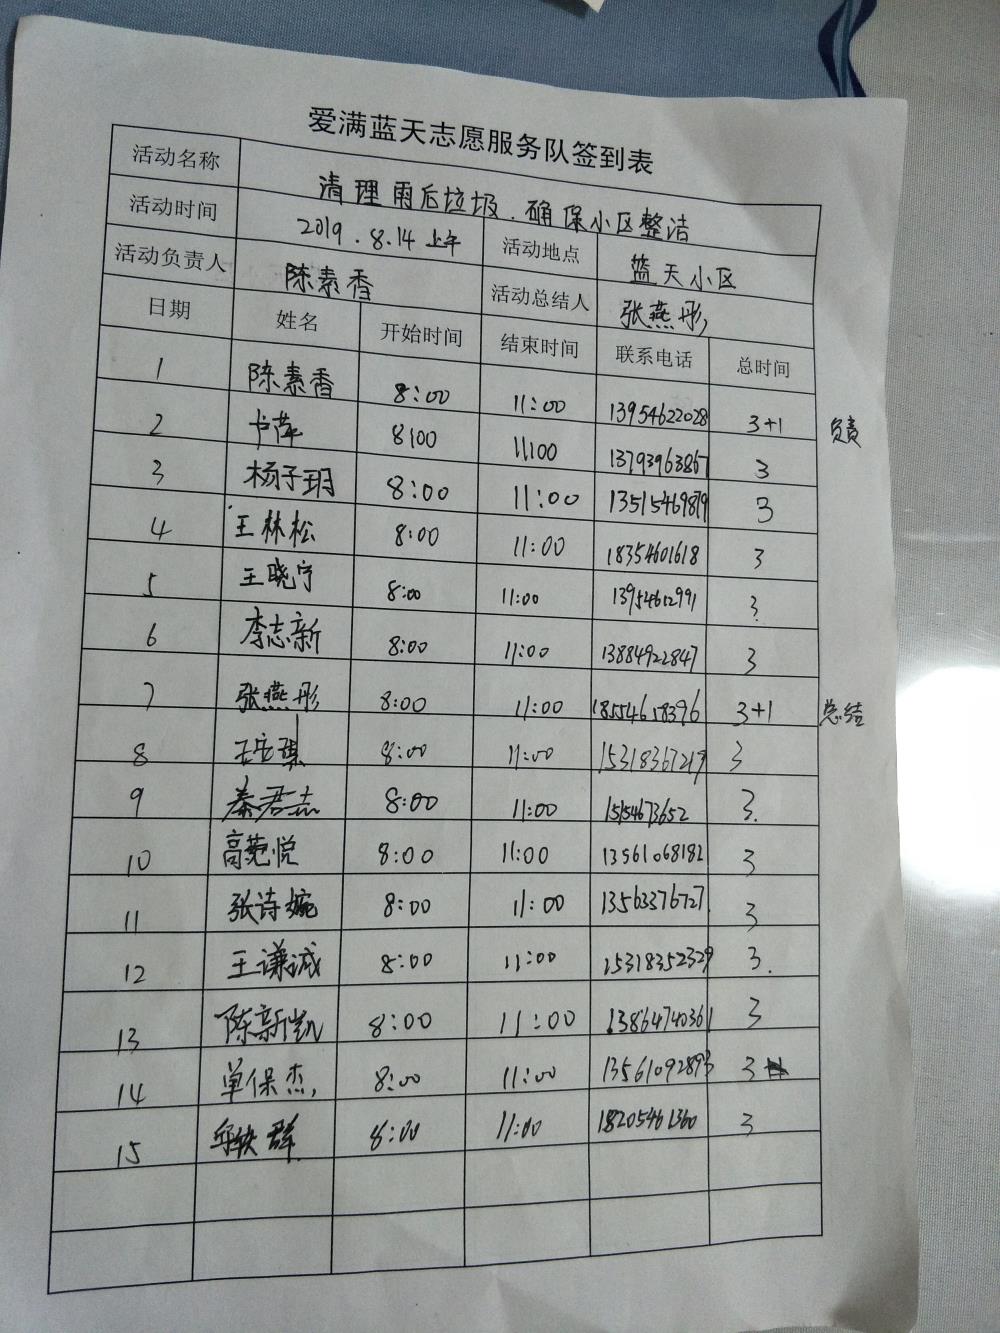 爱满蓝天志愿服务队签到表
活动名称 清理雨后垃圾.确保小区整洁
活动时间 2019.8.14上午 活动地点 蓝天小区
活动负责人 陈素香 活动总结人 张燕彤
日期 姓名 开始时间 结束时间 联系电话 总时间
1 陈素香 8:00 11:00 13954622028 3+1 负责
2 卢萍 8:00 11:00 13793963867 3
3 杨子玥 8:00 11:00 13515469819 3
4 王林松 8:00 11:00 18354601618 3
5 王晓宁 8:00 11:00 13954612991 3
6 李志新 8:00 11:00 13884922847 3
7 张燕彤 8:00 11:00 18554658396 3+1 总结
8 8:00 11:00 15318367219 3
9 秦君志 8:00 11:00 15154673652 3
10 高菀悦 8:00 11:00 13561068182 3
11 张诗婉 8:00 11:00 13563376727 3
12 王谦诚 8:00 11:00 15318352329 3
13 陈新凯 8:00 11:00 13864740361 3
14 单保杰 8:00 11:00 13561092893 3
15 8:00 11:00 18205461360 3